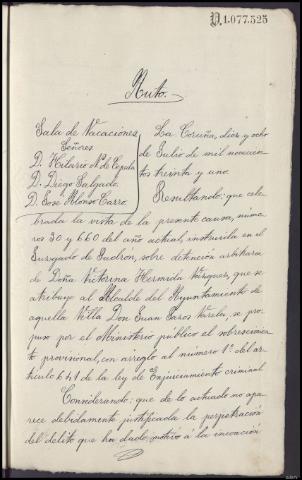 D.1.077.525
Auto.
Sala de Vacaciones
Señores
D. Hilario Nº de Cepeda
D. Diego Salgado.
D. José Alonso Carro.
La Coruña, diez y ocho
de Julio de mil novecien-
tos treinta y uno.
Resultando: que cele-
brada la vista de la presente causa, núme-
ros 30 y 660 del año actual, instruida en el
Juzgado de, sobre detención arbitraria
de Doña Victorina Hermida Vázquez, que se
atribuye al Alcalde del Ayuntamiento de
aquella Villa Don Juan Varela, se pro-
puso por el Ministerio público el sobreseimien-
to provisional, con arreglo al número 1º del ar-
tículo 641 de la ley de Enjuiciamiento criminal
Considerando: que de lo actuado no apa-
rece debidamente justificada la perpetración
del delito que ha dado motivo a la incoación